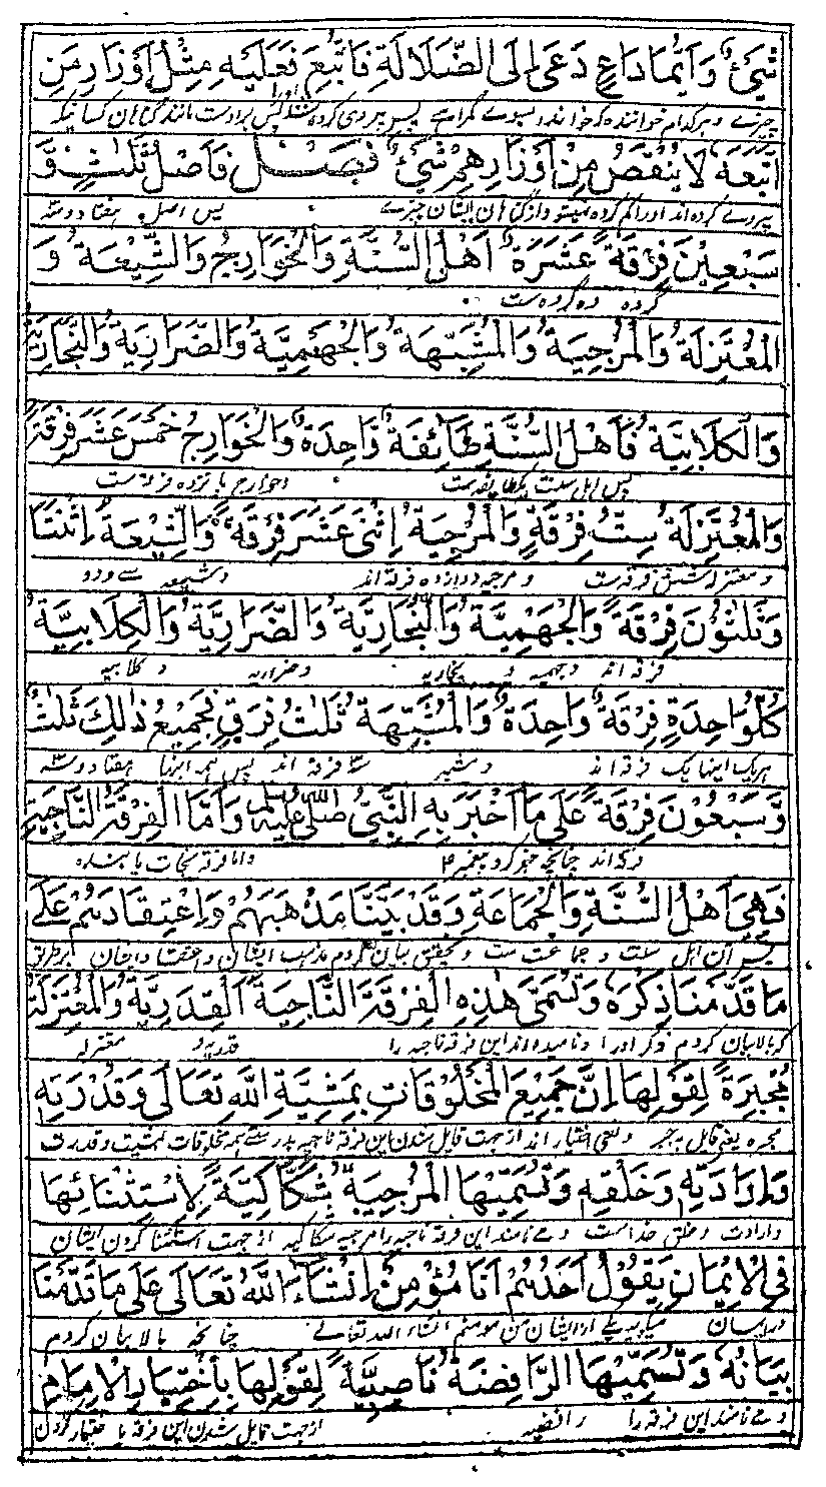 شَيْءٌ وَاَيُّمَا دَاعٍ دَعَى اِلَى الضَّلَالَةِ فَاتُّبِعَ فَعَلَيْهِ مِثْلُ اَوْزَارِ مَنِ
چیزے و هر کدام خواننده که خواند بسوے گمراهے پس پیروی کرده شد اورا پس بر اوست مانند گناهان کسانیکه
اتَّبَعَهٗ لَا يَنْقُصُ مِنْ اَوْزَارِهِمْ شَيْءٌ فَصْلٌ فَاَصْلُ ثَلٰثٍ وَّ
پیروے کرده اند اورا کم کرده نمیشود از گناهان ایشان چیزے پس اصل هفتاد و سه
سَبْعِيْنَ فِرْقَةً عَشَرَةٌ اَهْلُ السُّنَّةِ وَالْخَوَارِجُ وَالشِّيْعَةُ وَ
گروه ده گروه ست
الْمُعْتَزِلَةُ وَالْمُرْجِيَةُ وَالْمُشَبِّهَةُ وَالْجَهْمِيَّةُ وَالضَّرَارِيَّةُ وَالنَّجَّارِيَّةُ
وَالْكِلَابِيَّةُ فَاَهْلُ السُّنَّةِ طَائِفَةٌ وَّاحِدَةٌ وَالْخَوَارِجُ خَمْسَ عَشَرَ فِرْقَةً
پس اهل سنت یکطایفه ست و خوارج پانزده فرقه ست
وَالْمُعْتَزِلَةُ سِتُّ فِرْقَةٍ وَالْمُرْجِيَةُ اِثْنَى عَشَرَ فِرْقَةً وَالشِّيْعَةُ اِثْنَتَا
و معتزله شش فرقه ست و مرجیه دوازده فرقه اند و شیعه سے و دو
وَثَلٰثُوْنَ فِرْقَةً وَالْجَهْمِيَّةُ وَالنَّجَّارِيَّةُ وَالضَّرَارِيَّةُ وَالْكِلَابِيَّةُ
فرقه اند و جهمیه و نجاریه و ضراریه و کلابیه
كُلُّ وَاحِدَةٍ فِرْقَةٌ وَاحِدَةٌ وَالْمُشَبِّهَةُ ثَلٰثُ فِرَقٍ فَجَمِيْعُ ذٰلِكَ ثَلٰثٌ
هر یک اینها یک فرقه اند و مشبهه سه فرقه اند پس همه اینها هفتاد و سه
وَّسَبْعُوْنَ فِرْقَةً عَلٰى مَا اَخْبَرَ بِهِ النَّبِيُّ صَلَّى اللّٰهُ عَلَيْهِ وَسَلَّمَ وَاَمَّا الْفِرْقَةُ النَّاجِيَةُ
فرقه اند چنانچه خبر کرد پیغمبر و اما فرقه نجات یابنده
فَهِيَ اَهْلُ السُّنَّةِ وَالْجَمَاعَةِ وَقَدْ بَيَّنَّا مَذْهَبَهُمْ وَاعْتِقَادَهُمْ عَلٰى
پس آن اهل سنت و جماعت ست و تحقیق بیان کردم مذهب ایشان و اعتقاد ایشان بر طریق
مَا قَدَّمْنَا ذِكْرَهٗ وَتُسَمَّى هٰذِهِ الْفِرْقَةُ النَّاجِيَةُ الْقَدَرِيَّةُ وَالْمُعْتَزِلَةُ
که بالا بیان کردم ذکر او را و نامیده اند این فرقه ناجیه را قدریه و معتزله
مُجْبِرَةً لِقَوْلِهَا اِنَّ جَمِيْعَ الْمَخْلُوْقَاتِ بِمَشِيَّةِ اللّٰهِ تَعَالٰى وَقُدْرَتِهٖ
مجبره یعنے قایل به جبر و نفی اختیار اند از جهت قایل شدن این فرقه ناجیه بدرستے همه مخلوقات بمشیت و قدرت
وَاِرَادَتِهٖ وَخَلْقِهٖ وَتُسَمِّيْهَا الْمُرْجِيَةُ شَكَّاكِيَّةً لِاسْتِثْنَائِهَا
و ارادت و خلق خداست و مے نامند این فرقه ناجیه را مرجیه شکاکیه از جهت استثنا کردن ایشان
فِي الْاِيْمَانِ يَقُوْلُ اَحَدُهُمْ اَنَا مُؤْمِنٌ اِنْشَآءَ اللّٰهُ تَعَالٰى عَلٰى مَا قَدَّمْنَا
در ایمان میگوید یکے از ایشان من مومنم انشاء الله تعالے چنانچه بالا بیان کردم
بَيَانَهٗ وَتُسَمِّيْهَا الرَّافِضَةُ نَاصِبِيَّةً لِقَوْلِهَا بِاخْتِيَارِ الْاِمَامِ
و مے نامند این فرقه را رافضیه از جهت قایل شدن این فرقه با ختیار کردن